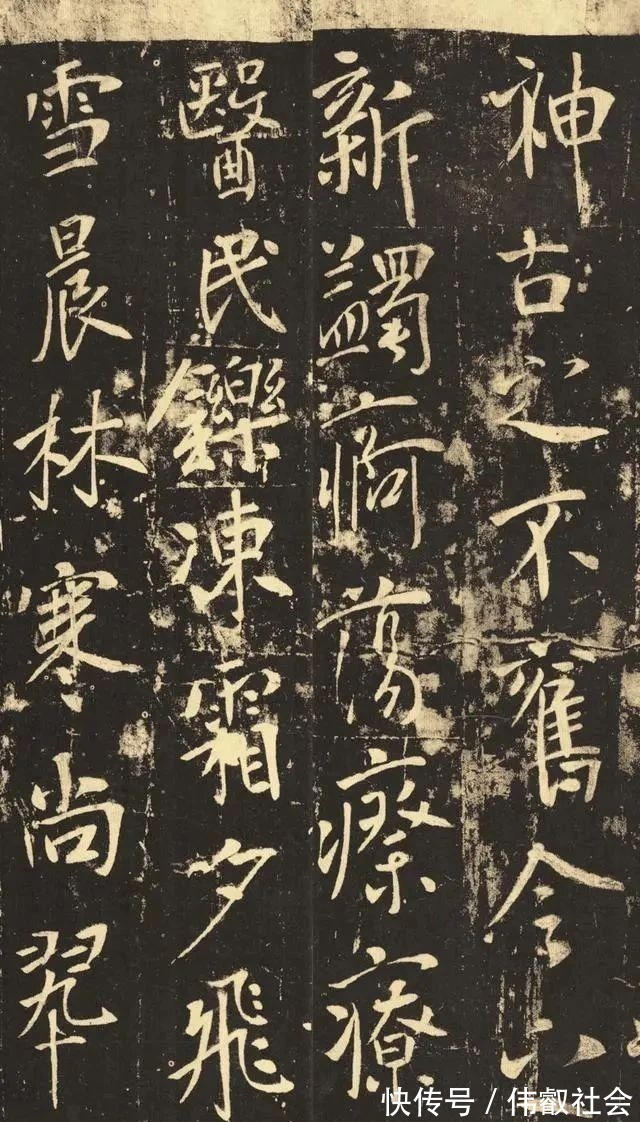 神古之不舊今之
新蠲痾蕩瘵療
醫民鑠凍霜夕飛
雪晨林寒尚翠
快传号 / 伟叡社会